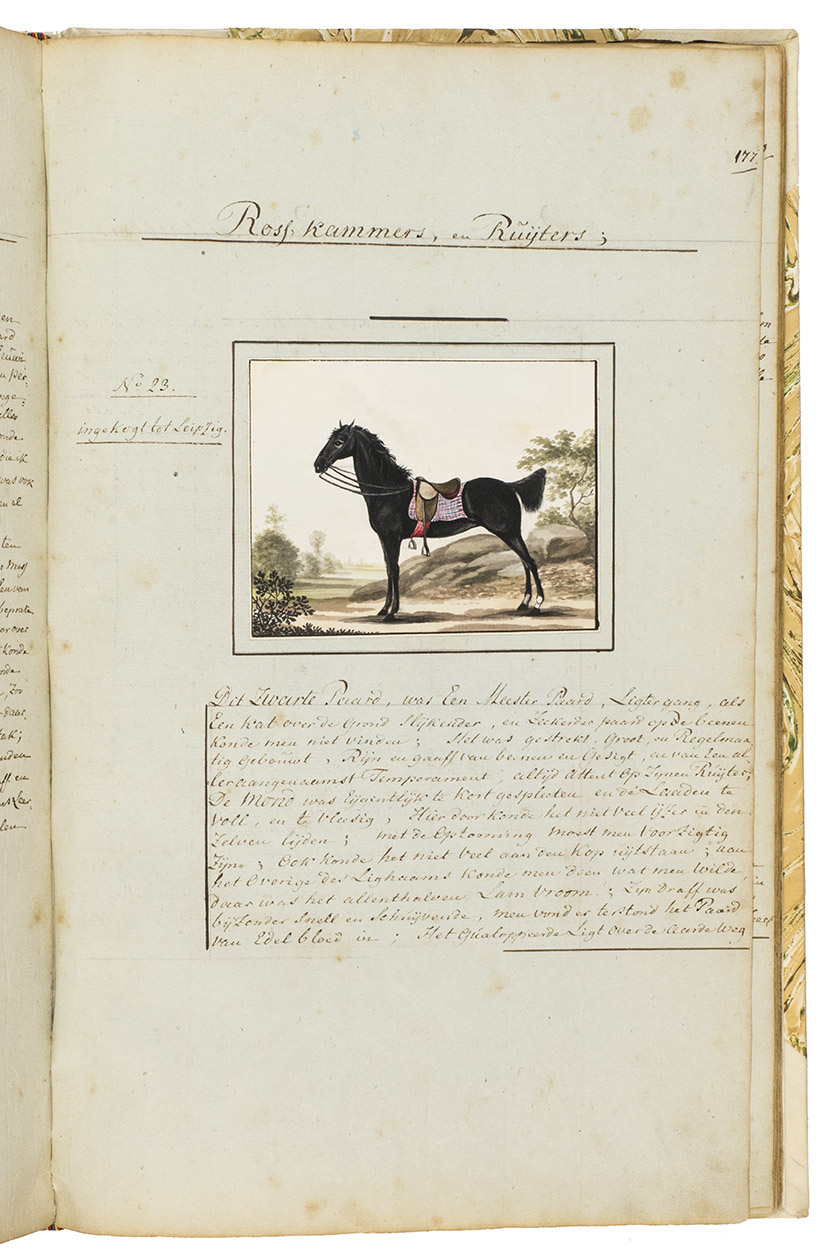 177
Ross kammers, en Ruÿters;
No 23.
ingekogt tot Leipzig.
Dit Zwarte Paard, was Een Meester Paard, Ligter gang, als
Een kat over de Grond Slijkender, en Zeekerder paard op de beenen
konde men niet vinden; Het was gestrekt, Groot, en Regelmaa
tig Gebouwt, Rijn en gaaff van beenen en Gesigt, en van Een al
leraangenaamst Temperament, altijd Attent Op Zijnen Ruÿter;
De Mond was Eijgentlijk te kort gespleeten en de Laaden te
voll, en te vleesig, Hier door konde het niet veel ijser in den
Zelven lijden; met de Optooming moest men voorzigtig
Zijn; Ook konde het niet veel aan den Kop uijtstaan; aan
het Overige des Lighaams konde men doen wat men wilde,
daar was het allenthalven Lam vroom; Zijn Draff was
bijzonder Snell en Schuijvende, men vond er terstond het Paard
van Edel bloed in; Het Gualoppeerde Ligt Over de Aarde weg